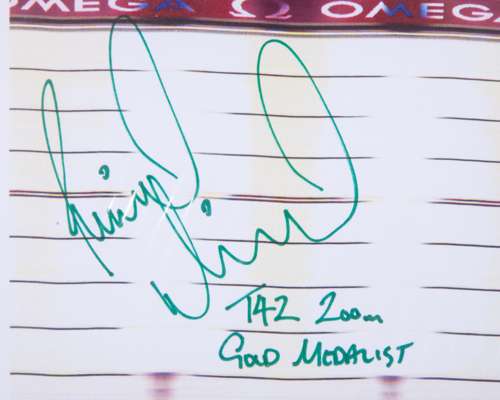 OMEGA Ω OMEGA
T42 200m
GOLD MEDALIST